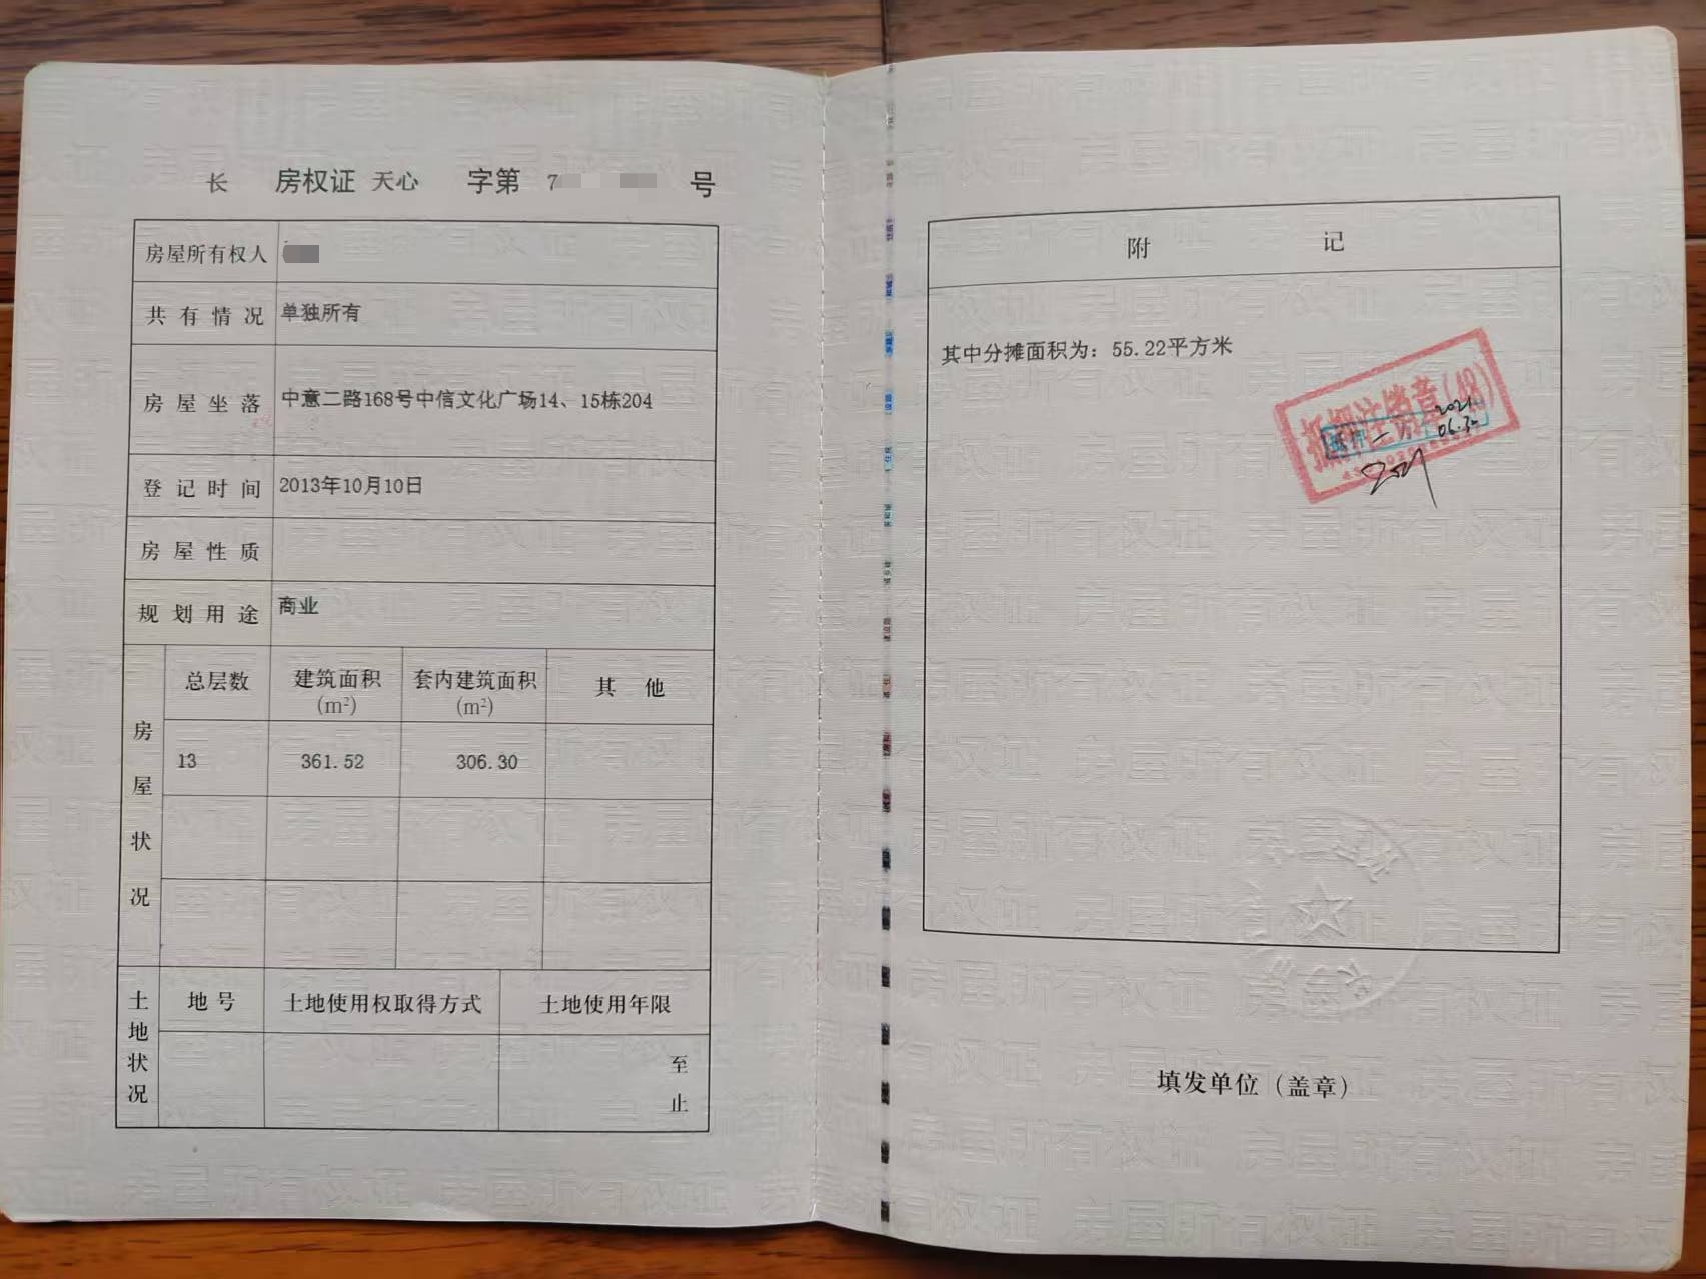 长 房权证 天心 字第 7 号
房屋所有权人
共有情况 单独所有
房屋坐落 中意二路168号中信文化广场14、15栋204
登记时间 2013年10月10日
房屋性质
规划用途 商业
房屋状况
总层数 建筑面积(m²) 套内建筑面积(m²) 其他
13 361.52 306.30
土地状况
地号 土地使用权取得方式 土地使用年限
至
止
附 记
其中分摊面积为：55.22平方米
抵押注销章(18)
抵押
2021
06.30
填发单位（盖章）